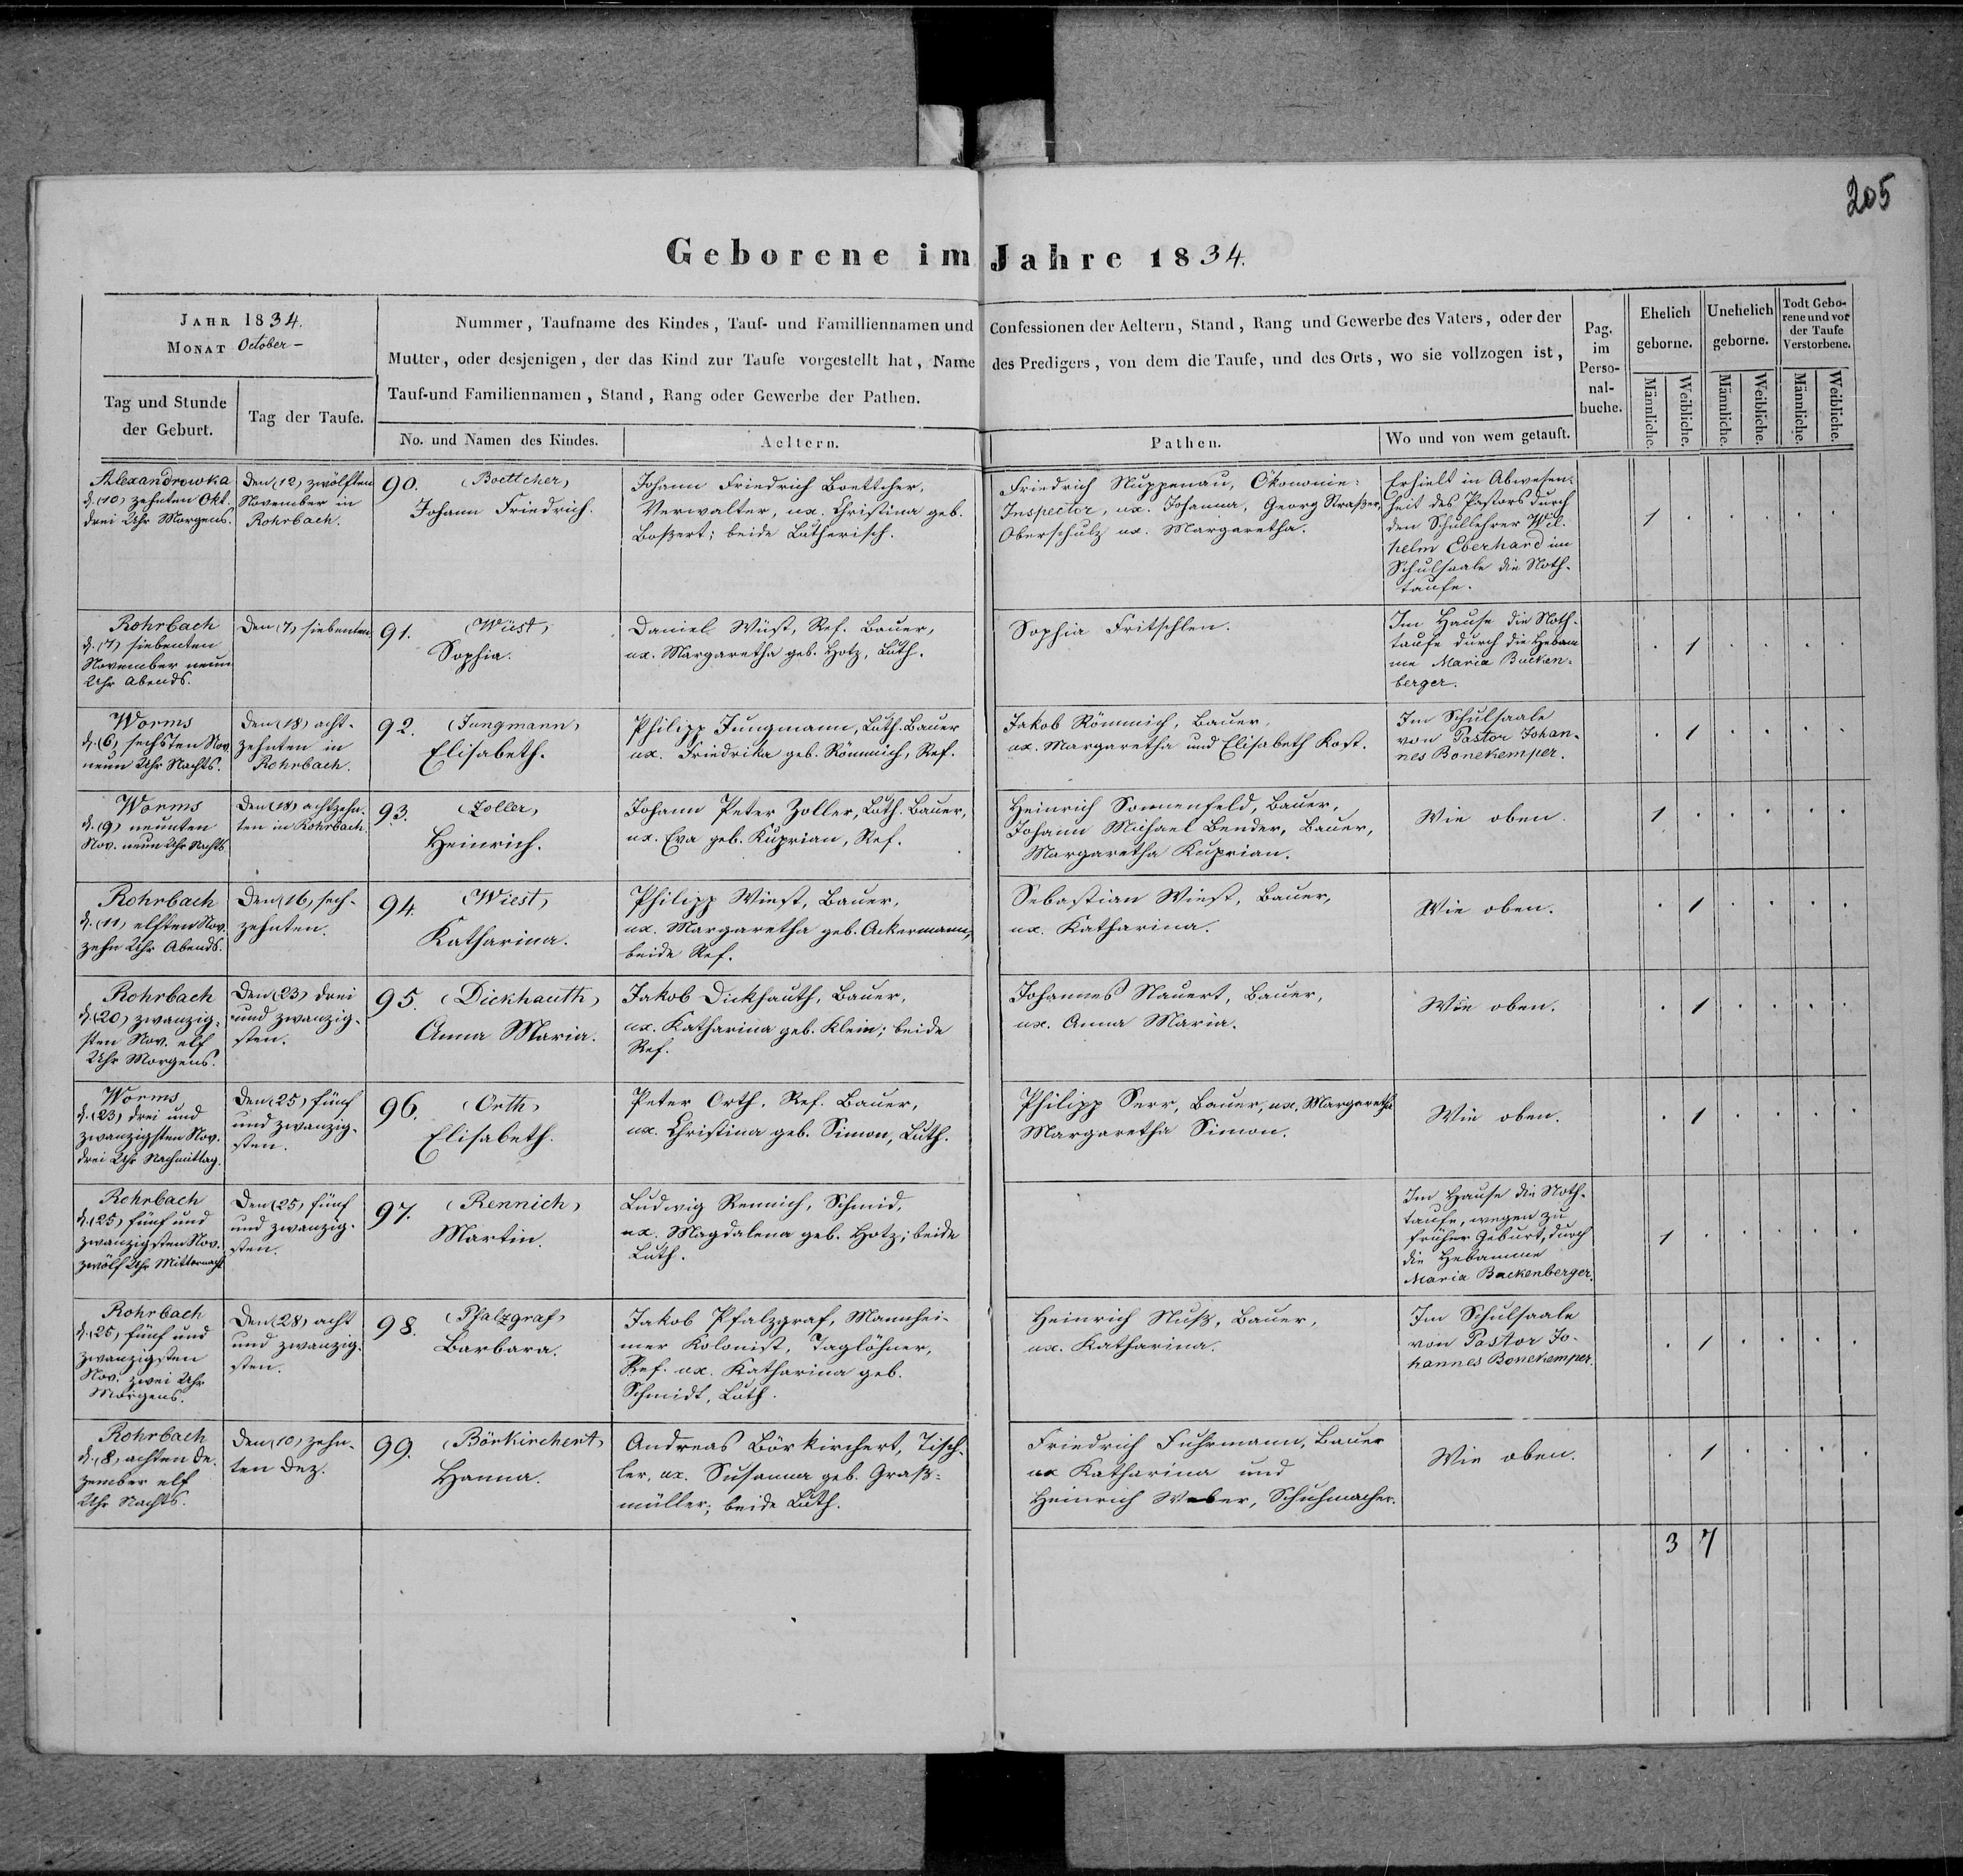 205
Geborene im Jahre 1834.
JAHR 1834.
MONAT October -
Tag und Stunde
der Geburt.
Tag der Taufe.
Nummer, Taufname des Kindes, Tauf- und Familliennamen und Confessionen der Aeltern, Stand, Rang und Gewerbe des Vaters, oder der
Mutter, oder desjenigen, der das Kind zur Taufe vorgestellt hat, Name des Predigers, von dem die Taufe, und des Orts, wo sie vollzogen ist,
Tauf-und Familiennamen, Stand, Rang oder Gewerbe der Pathen.
No. und Namen des Kindes.
Aeltern.
Pathen.
Wo und von wem getauft.
Pag.
im
Perso-
nal-
buche.
Ehelich
geborne.
Unehelich
geborne.
Todt Gebo-
rene und vor
der Taufe
Verstorbene.
Männliche.
Weibliche.
Männliche.
Weibliche.
Männliche.
Weibliche.
Alexandrowka
d. (10) zehnten Okt.
drei Uhr Morgens.
Den (12) zwölften
November in
Rohrbach.
90. (Boettcher)
Johann Friedrich.
Johann Friedrich Boettcher,
Verwalter, ux. Christina geb.
Boßert; beide Lutherisch.
Friedrich Nuppenau, Ökonomie-
Inspector, ux. Johanna, Georg Straßer,
Oberschulz ux. Margaretha.
Erhielt in Abwesen-
heit des Pastors durch
den Schullehrer Wil-
helm Eberhard im
Schulsaale die Noth-
taufe.
1 . . . . .
Rohrbach
d. (7) siebenten
November neun
Uhr Abends.
Den (7) siebenten
91. (Wüst)
Sophia.
Daniel Wüst, Ref. Bauer,
ux. Margaretha geb. Hotz, Luth.
Sophia Fritschlen.
Im Hause die Noth-
taufe durch die Hebam
me Maria Bucken-
berger.
. 1 . . . .
Worms
d. (6) sechsten Nov.
neun Uhr Nachts.
Den (18) acht-
zehnten in
Rohrbach.
92. (Jungmann)
Elisabeth.
Philipp Jungmann, Luth. Bauer
ux. Friedrika geb. Römmich, Ref.
Jakob Römmich, Bauer,
ux. Margaretha und Elisabeth Kost.
Im Schulsaale
von Pastor Johan-
nes Bonekemper.
. 1 . . . .
Worms
d. (9) neunten
Nov. neun Uhr Nachts
Den (18) achtzehn-
ten in Rohrbach.
93. (Zoller)
Heinrich.
Johann Peter Zoller, Luth. Bauer,
ux. Eva geb. Kuprian, Ref.
Heinrich Sonnenfeld, Bauer,
Johann Michael Bender, Bauer,
Margaretha Kuprian.
Wie oben.
1 . . . . .
Rohrbach
d. (11) elften Nov.
zehn Uhr Abends.
Den (16) sech-
zehnten.
94. (Wiest)
Katharina.
Philipp Wiest, Bauer,
ux. Margaretha geb. Ackermann,
beide Ref.
Sebastian Wiest, Bauer,
ux. Katharina.
Wie oben.
. 1 . . . .
Rohrbach
d. (20) zwanzig-
sten Nov. elf
Uhr Morgens.
Den (23) drei
und zwanzig-
sten.
95. (Dickhauth)
Anna Maria.
Jakob Dickhauth, Bauer,
ux. Katharina geb. Klein; beide
Ref.
Johannes Nauert, Bauer,
ux. Anna Maria.
Wie oben.
. 1 . . . .
Worms
d. (23) drei und
zwanzigsten Nov.
drei Uhr Nachmittag.
Den (25) fünf
und zwanzig-
sten.
96. (Orth)
Elisabeth.
Peter Orth, Ref. Bauer,
ux. Christina geb. Simon, Luth.
Philipp Serr, Bauer, ux. Margaretha
Margaretha Simon.
Wie oben.
. 1 . . . .
Rohrbach
d. (25) fünf und
zwanzigsten Nov.
zwölf Uhr Mitternacht
Den (25) fünf
und zwanzig-
sten.
97. (Rennich)
Martin.
Ludwig Rennich, Schmid,
ux. Magdalena geb. Hotz; beide
Luth.
Im Hause die Noth-
taufe, wegen zu
früher Geburt, durch
die Hebamme
Maria Buckenberger.
1 . . . . .
Rohrbach
d. (25) fünf und
zwanzigsten
Nov. zwei Uhr
Morgens.
Den (28) acht
und zwanzig-
sten.
98. (Pfalzgraf)
Barbara.
Jakob Pfalzgraf, Mannhei-
mer Kolonist, Taglöhner,
Ref. ux. Katharina geb.
Schmidt, Luth.
Heinrich Nuß, Bauer,
ux. Katharina.
Im Schulsaale
von Pastor Jo-
hannes Bonekemper.
. 1 . . . .
Rohrbach
d. (8) achten De-
zember elf
Uhr Nachts.
Den (10) zehn-
ten Dez.
99. (Börkirchert)
Hanna.
Andreas Börkirchert, Tisch-
ler, ux. Susanna geb. Graß-
müller; beide Luth.
Friedrich Fuhrmann, Bauer
ux Katharina und
Heinrich Weber, Schuhmacher.
Wie oben.
. 1 . . . .
3 7